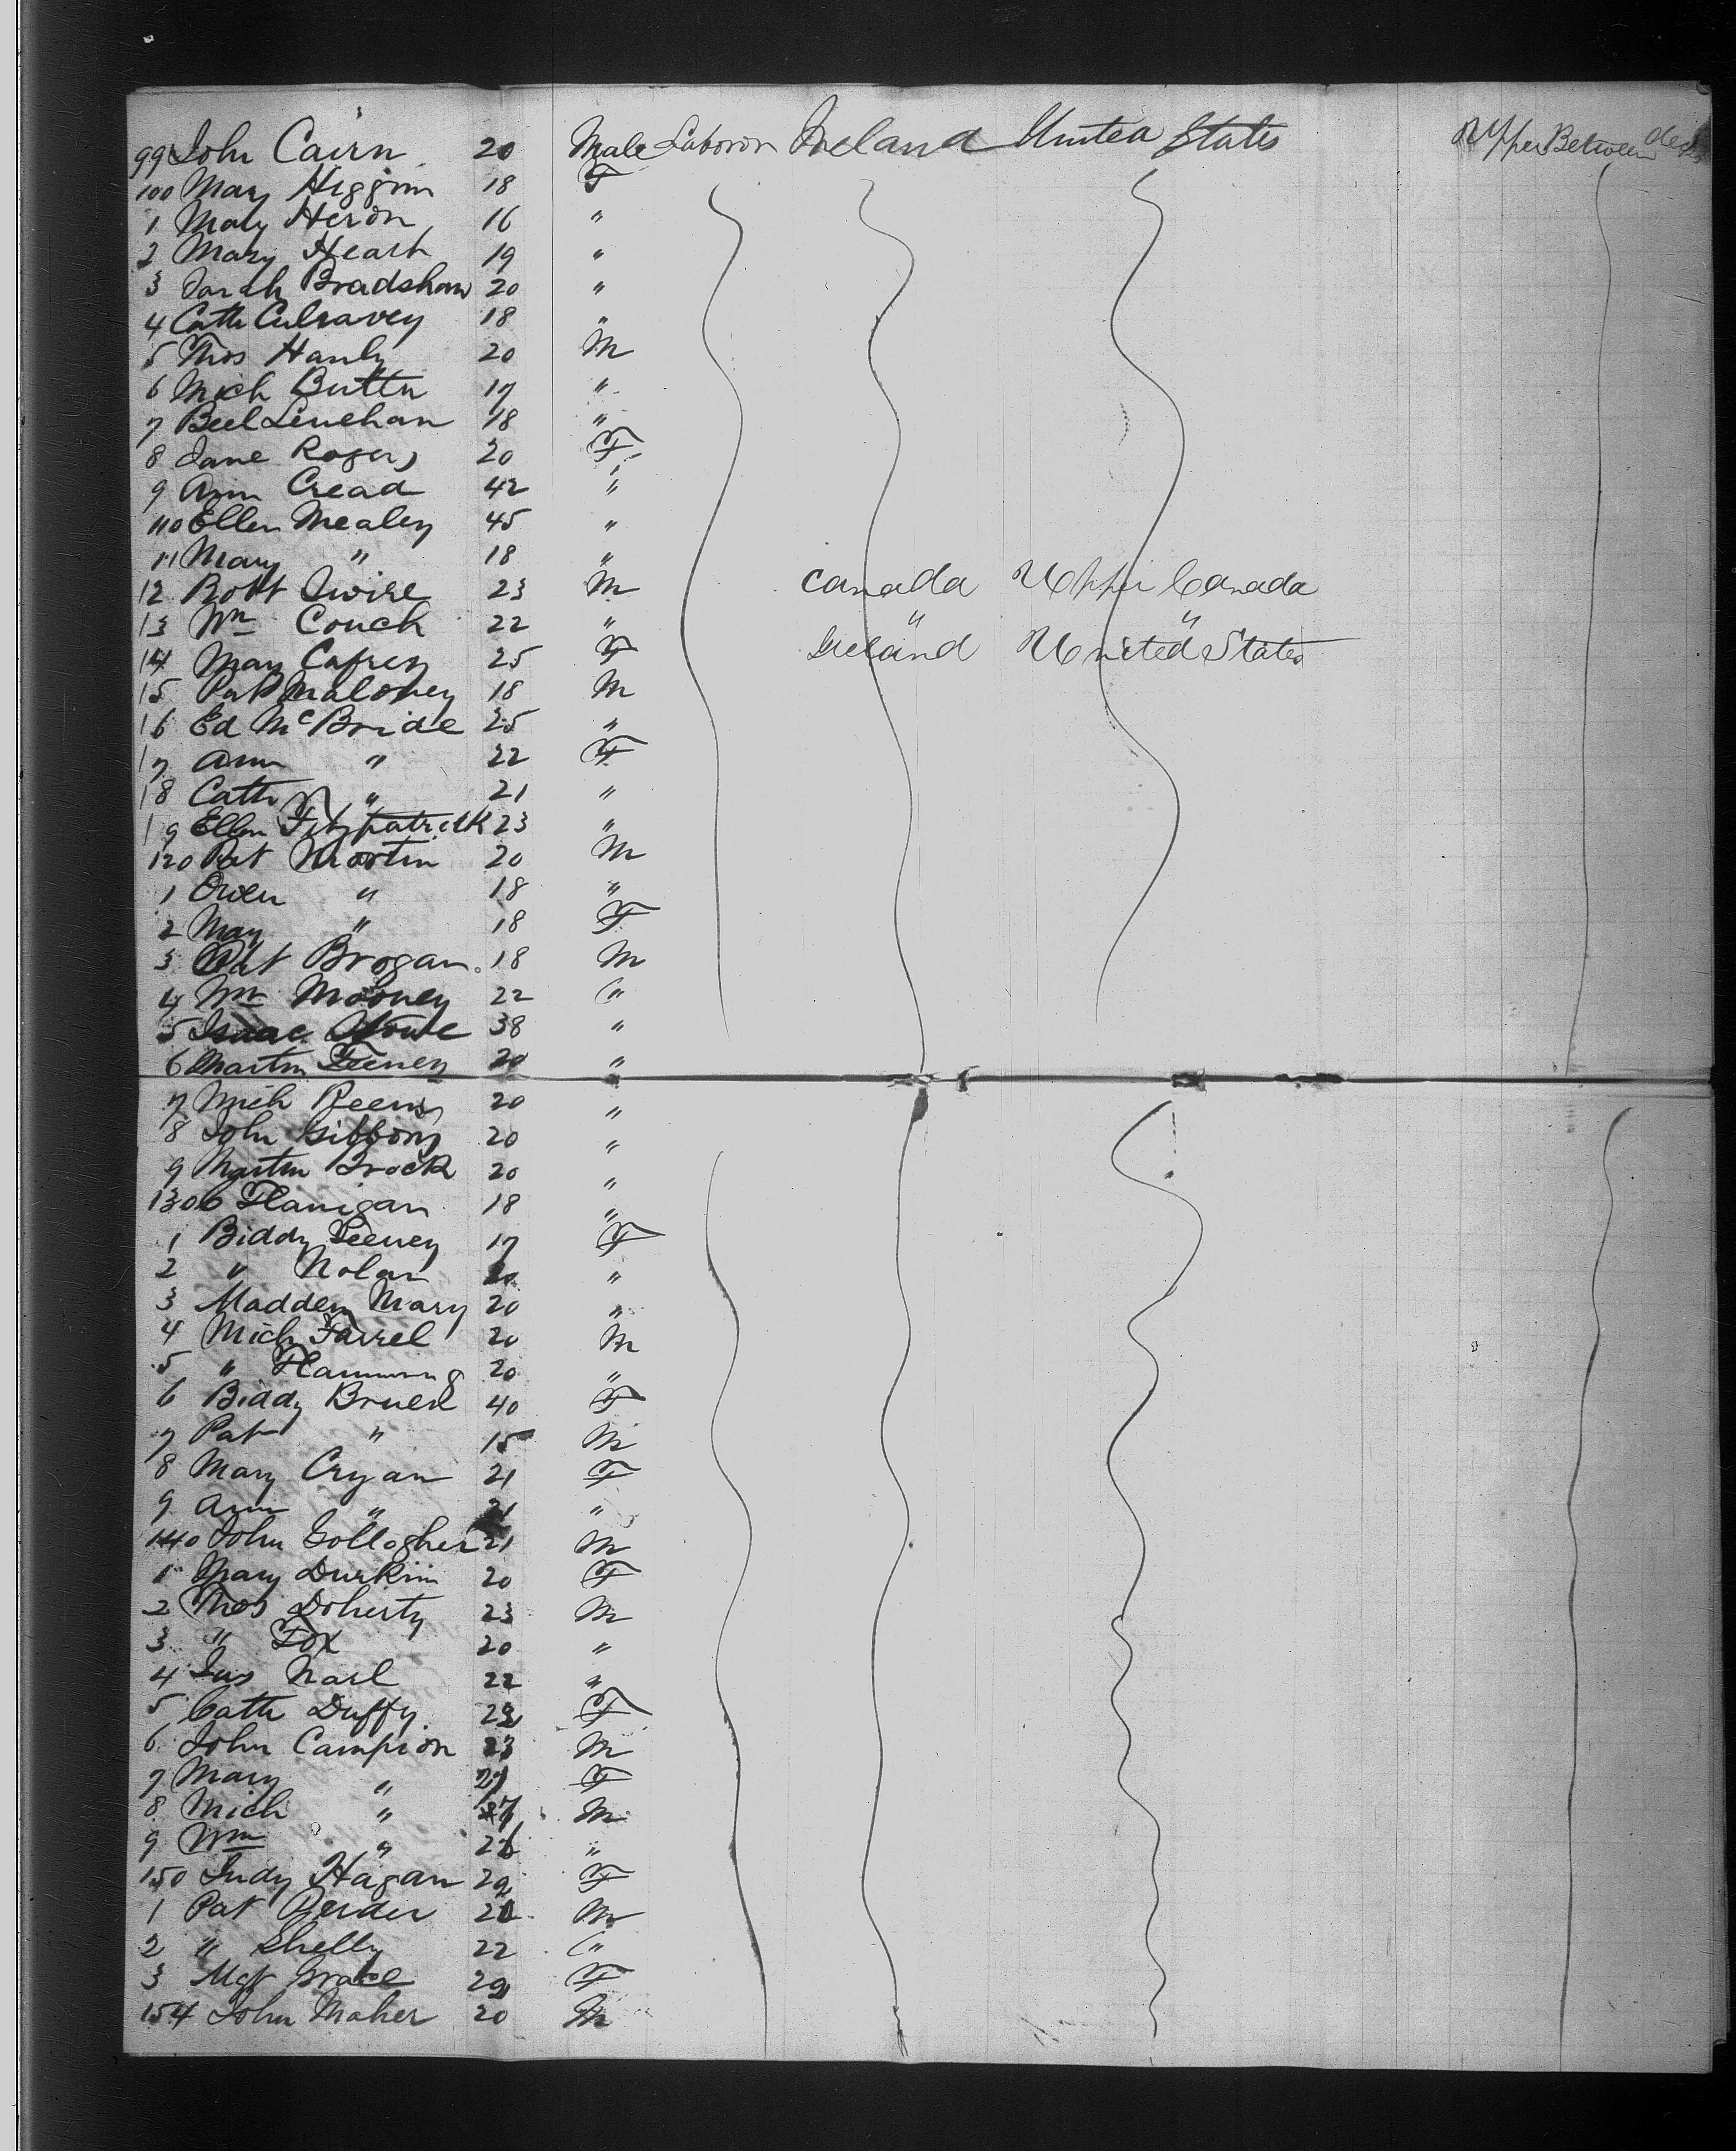 99 John Cairn 20 Male Laboror Ireland United States Upper Between decks
100 Mary Higgins 18 F
1 Mary Heron 16 "
2 Mary Heart 19 "
3 Sarah Bradshaw 20 "
4 Cath 18 "
5 Thos Hanly 20 M
6 Mich 17 "
7 Linehan 18 "
8 Jane Rogers 20 F
9 Ann Cread 42 "
110 Ellen Mealey 45 "
111 Mary " 18 "
12 Robt 23 M Canada Upper Canada
13 Wm Couch 22 " " "
14 Mary 25 F Ireland United States
15 Pat Maloney 18 M
16 Ed McBride 25 "
17 Ann " 22 F
18 Cath " 21 "
19 Ellen Fitzpatrick 23 "
120 Pat Martin 20 M
1 Owen " 18 "
2 May " 18 F
3 Pat Brogan 18 M
4 Wm Mooney 22 "
5 Isaac 38 "
6 Martin Feeney 20 "
7 Mich 20 "
8 John Gibbons 20 "
9 Martin 20 "
130 Flanigan 18 "
1 Biddy Feeney 17 F
2 " Nolan 20 "
3 Madden Mary 20 "
4 Mich Farrel 20 M
5 " Flanning 20 "
6 Biddy Bruen 40 F
7 Pat " 15 M
8 Mary Cryan 21 F
9 Ann " 21 "
140 John Gollogher 21 M
1 Mary Durkin 20 F
2 Thos Doherty 23 M
3 " Fox 20 "
4 22 "
5 Cath Duffy F
6 John Campion 23 M
7 Mary " F
8 Mich " M
9 Wm " "
150 Judy Hagan F
1 Pat M
2 " Shelly 22 "
3 Mgt Grace F
154 John Maher 20 M